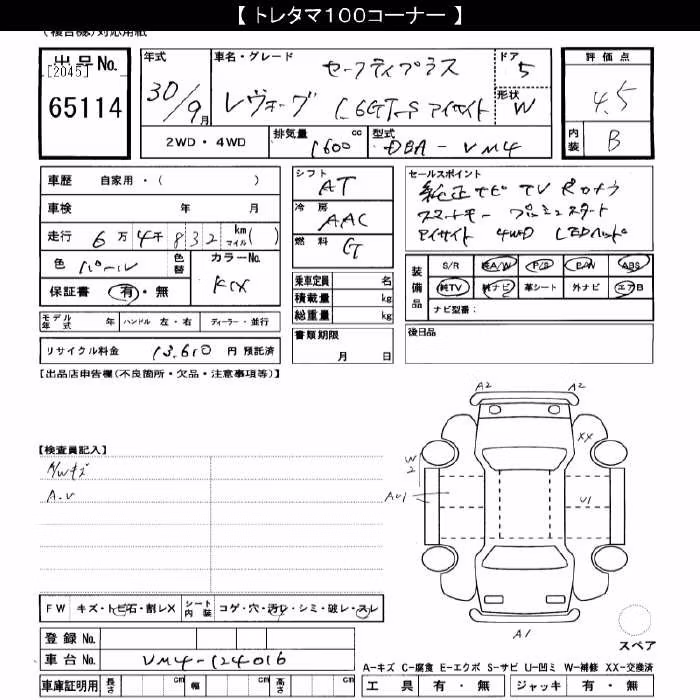 【 トレタマ100コーナー 】
(複合機)対応用紙
出品No.
[2045]
65114
年式
30/9月
車名・グレード
セーフティプラス
レヴォーグ 1.6GT-S アイサイト
ドア
5
形状
W
評価点
4.5
内装
B
2WD・4WD
排気量
1600 cc
型式
DBA - VM4
車歴 自家用・( )
車検 年 月
走行 6万4千832 km マイル( )
色 パール
色替
カラーNo.
K1X
保証書 有・無
モデル年式 年 ハンドル 左・右 ディーラー・並行
リサイクル料金 13,610 円 預託済
シフト
AT
冷房
AAC
燃料
G
乗車定員 名
積載量 kg
総重量 kg
書類期限
月 日
セールスポイント
純正ナビ TV Rカメラ
スマートキー プッシュスタート
アイサイト 4WD LEDヘッド
装備品
S/R 純A/W P/S P/W ABS
純TV 純ナビ 革シート 外ナビ エアB
ナビ型番:
後日品
【出品店申告欄(不良箇所・欠品・注意事項等)】
【検査員記入】
A/Wキズ
A.U
A2 A2
XX
W2
AU1
U1
A1
スペア
FW キズ・トビ石・割レX
シート内装 コゲ・穴・汚レ・シミ・破レ・スレ
登録 No.
車台 No. VM4-124016
車庫証明用 長さ cm 幅 cm 高さ cm
A-キズ C-腐食 E-エクボ S-サビ U-凹ミ W-補修 XX-交換済
工具 有・無 ジャッキ 有・無